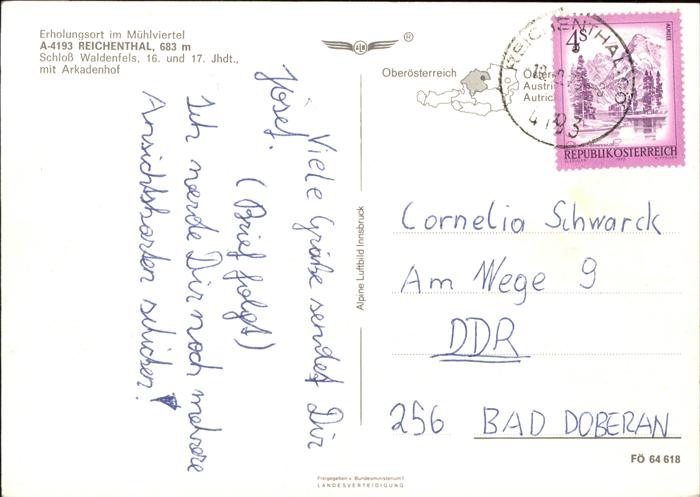 Erholungsort im Mühlviertel
A-4193 REICHENTHAL, 683 m
Schloß Waldenfels, 16. und 17. Jhdt.,
mit Arkadenhof
Viele Grüße sendet Dir
Josef.
(Brief folgt)
Ich werde Dir noch mehrere
Ansichtskarten schicken!
Alpine Luftbild Innsbruck
ALI
®
Oberösterreich
Austri
Autric
REICHENTHAL
4193
4 S
ALMSEE
REPUBLIK ÖSTERREICH
Cornelia Schwarck
Am Wege 9
DDR
256 BAD DOBERAN
FÖ 64 618
Freigegeben v. Bundesministerium f.
LANDESVERTEIDIGUNG